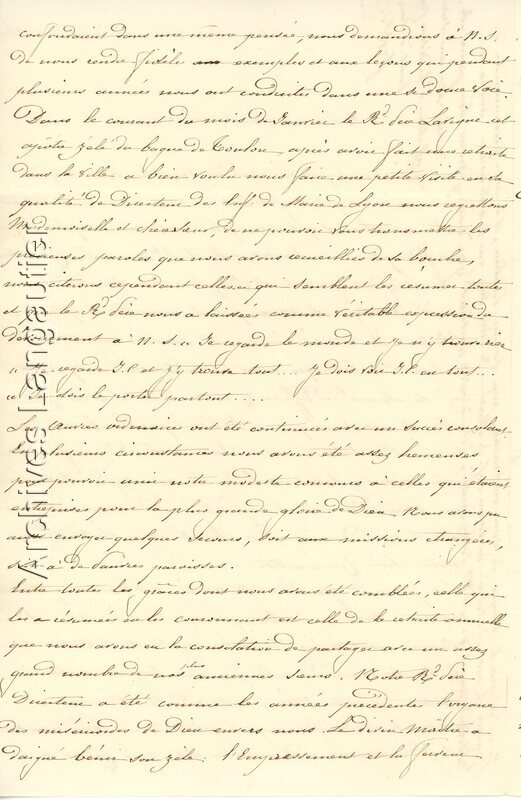 confondaient dans une même pensée, nous demandions à N. S.
de nous rendre fidèles aux exemples et aux leçons qui pendant
plusieurs années nous ont conduites dans une si douce voie.
Dans le courant du mois de Janvier le Rd Père Lavigne cet
apôtre zélé du bagne de Toulon, après avoir fait une retraite
dans la ville a bien voulu nous faire une petite visite en sa
qualité de Directeur des Enf. de Marie de Lyon nous regrettons
Mademoiselle et chère Sœur, de ne pouvoir vous transmettre les
précieuses paroles que nous avons recueillies de sa bouche,
nous citerons cependant celles-ci qui semblent les résumer toutes
et que le Rd Père nous a laissées comme véritable expression du
dévouement à N. S. « Je regarde le monde et je n'y trouve rien
« Je regarde J. C et j'y trouve tout... Je dois voir J. C en tout...
« Je dois le porter partout....
Les Œuvres ordinaires ont été continuées avec un succès consolant.
En plusieurs circonstances nous avons été assez heureuses
pour pouvoir unir notre modeste concours à celles qui étaient
entreprises pour la plus grande gloire de Dieu. Nous avons pu
aussi envoyer quelques secours, soit aux missions étrangères,
soit à de pauvres paroisses.
Entre toutes les grâces dont nous avons été comblées, celle qui
les a résumées ou les couronnant est celle de la retraite annuelle
que nous avons eu la consolation de partager avec un assez
grand nombre de nos chères anciennes sœurs. Notre Rd Père
Directeur a été comme les années précédentes l'organe
des miséricordes de Dieu envers nous. Le divin Maître a
daigné bénir son zèle: l'Empressement et la ferveur
Archives Langautier